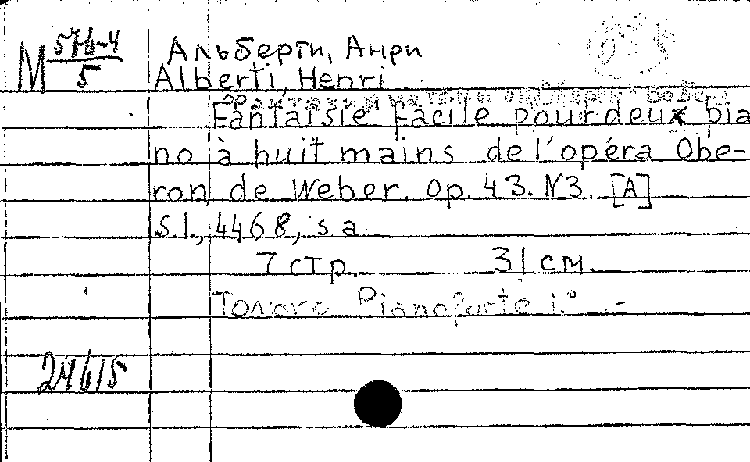 М 576-4
5
Альберти, Анри
Alberti, Henri
Fantaisie facile pour deux pia
no à huit mains de l'opéra Obe-
ron de Weber. Op. 43. N3. [A]
S.l., 4468, s a
7 стр. 31 см.
Только Pianoforte 1°
24615